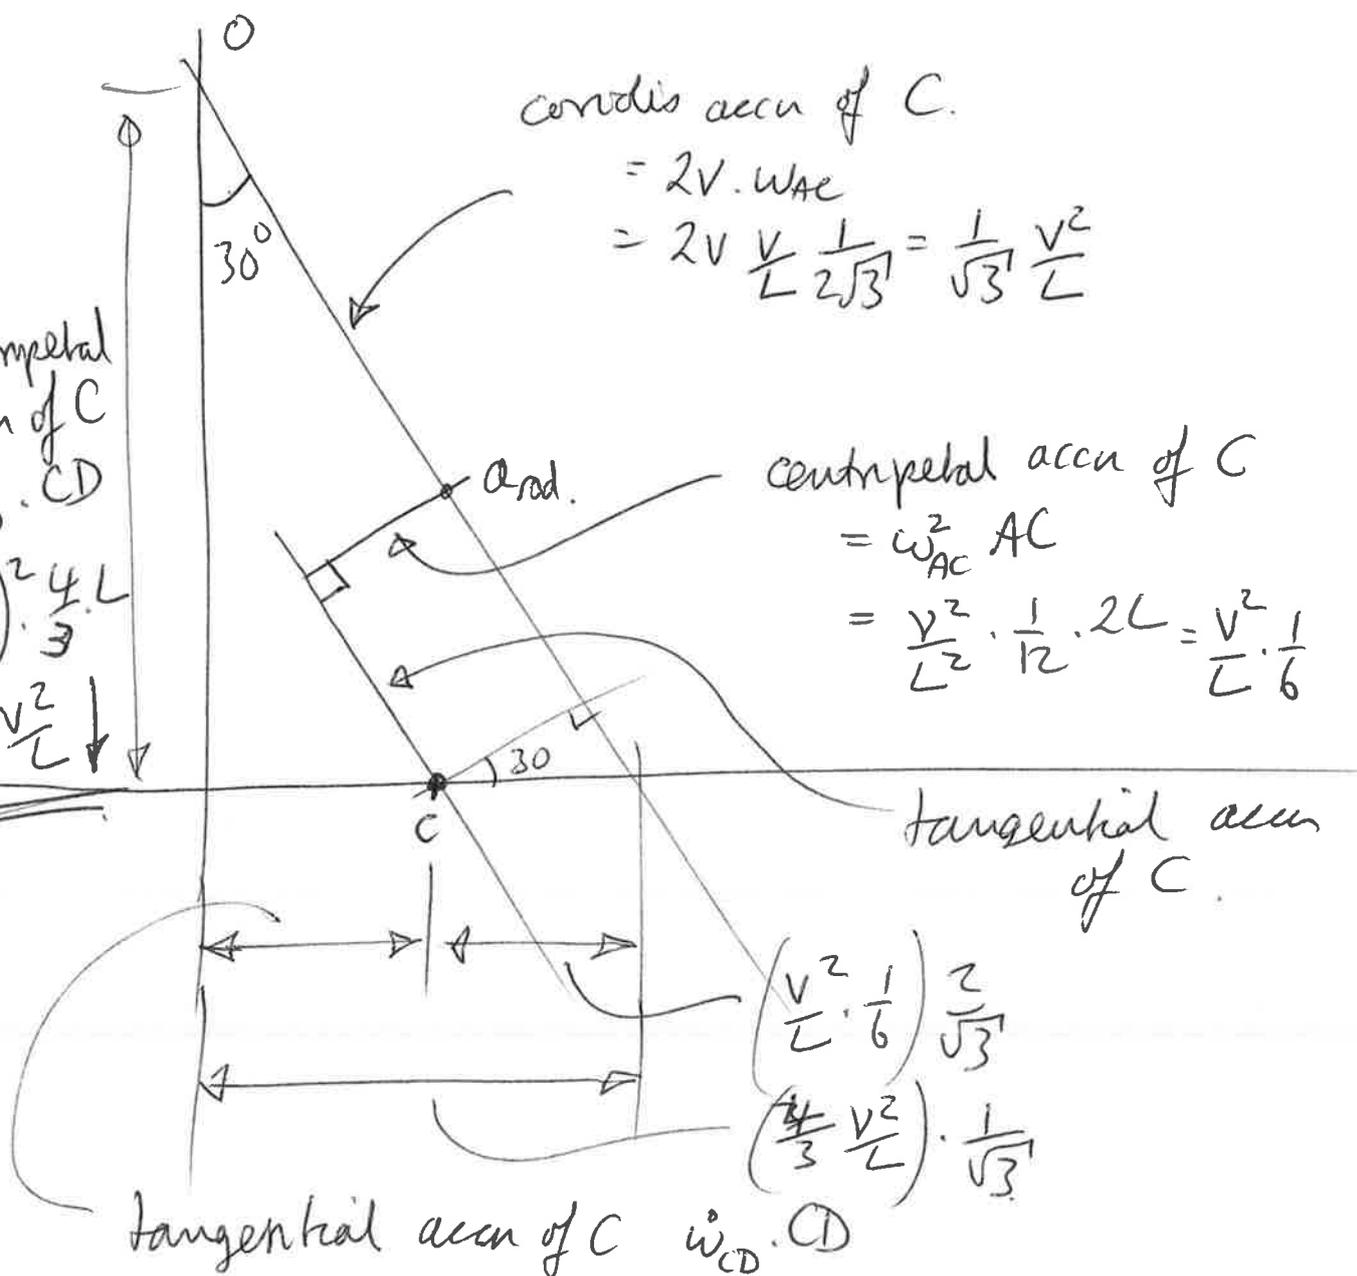 O
30°
coriolis accn of C.
= 2V . ω_AC
= 2V V/L 1/(2√3) = 1/√3 V²/L
of C
. CD
)² . 4/3 . L
V²/L ↓
a_rad.
centripetal accn of C
= ω²_AC AC
= V²/L² . 1/12 . 2L = V²/L . 1/6
30
C
tangential accn
of C .
(V²/L . 1/6) 2/√3
(4/3 V²/L) . 1/√3
tangential accn of C ω̇_CD . CD